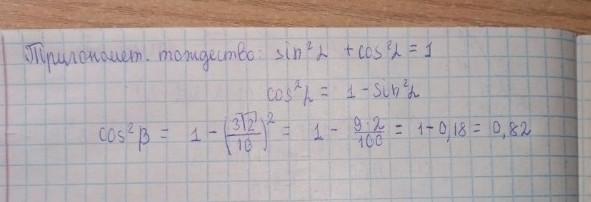 Тригономет. тождество: sin²α + cos²α = 1
cos²α = 1 - sin²α
cos²β = 1 - (3√2/10)² = 1 - 9·2/100 = 1 - 0,18 = 0,82